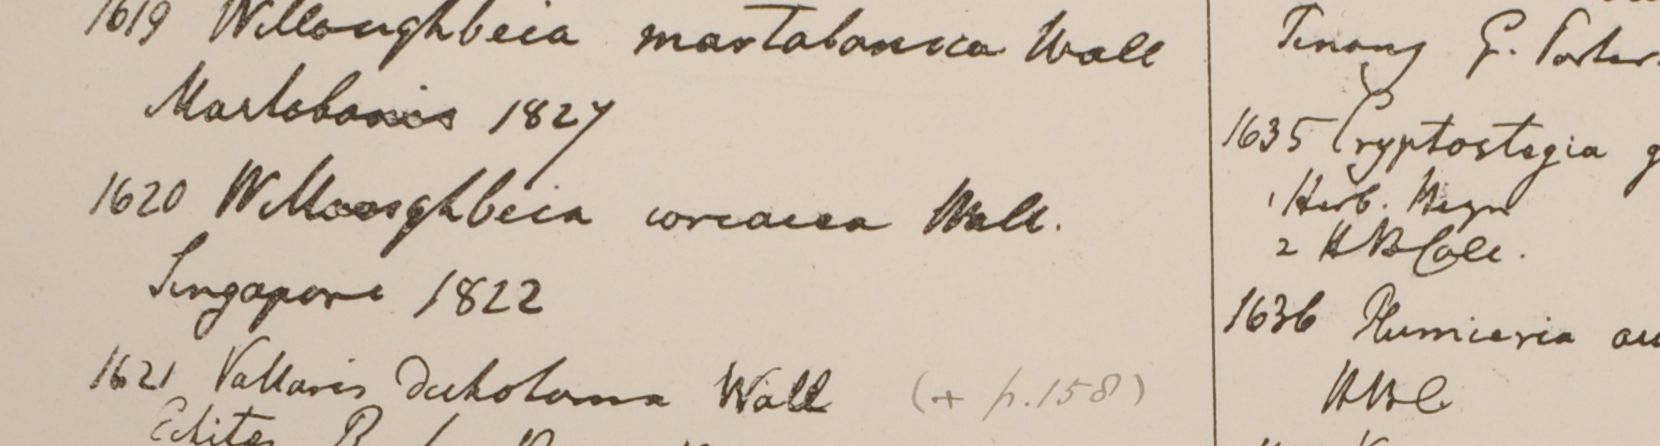 1619 Willoughbeia martabanica Wall
Martabania 1827
1620 Willoughbeia coriacea Wall.
Singapore 1822
1621 Vallaris dichotoma Wall (+ p.158)
Echites
Penang G. Porter
1635 Cryptostegia g
1 Herb. Wegn
2 HBCalc.
1636 Plumieria au
HBC